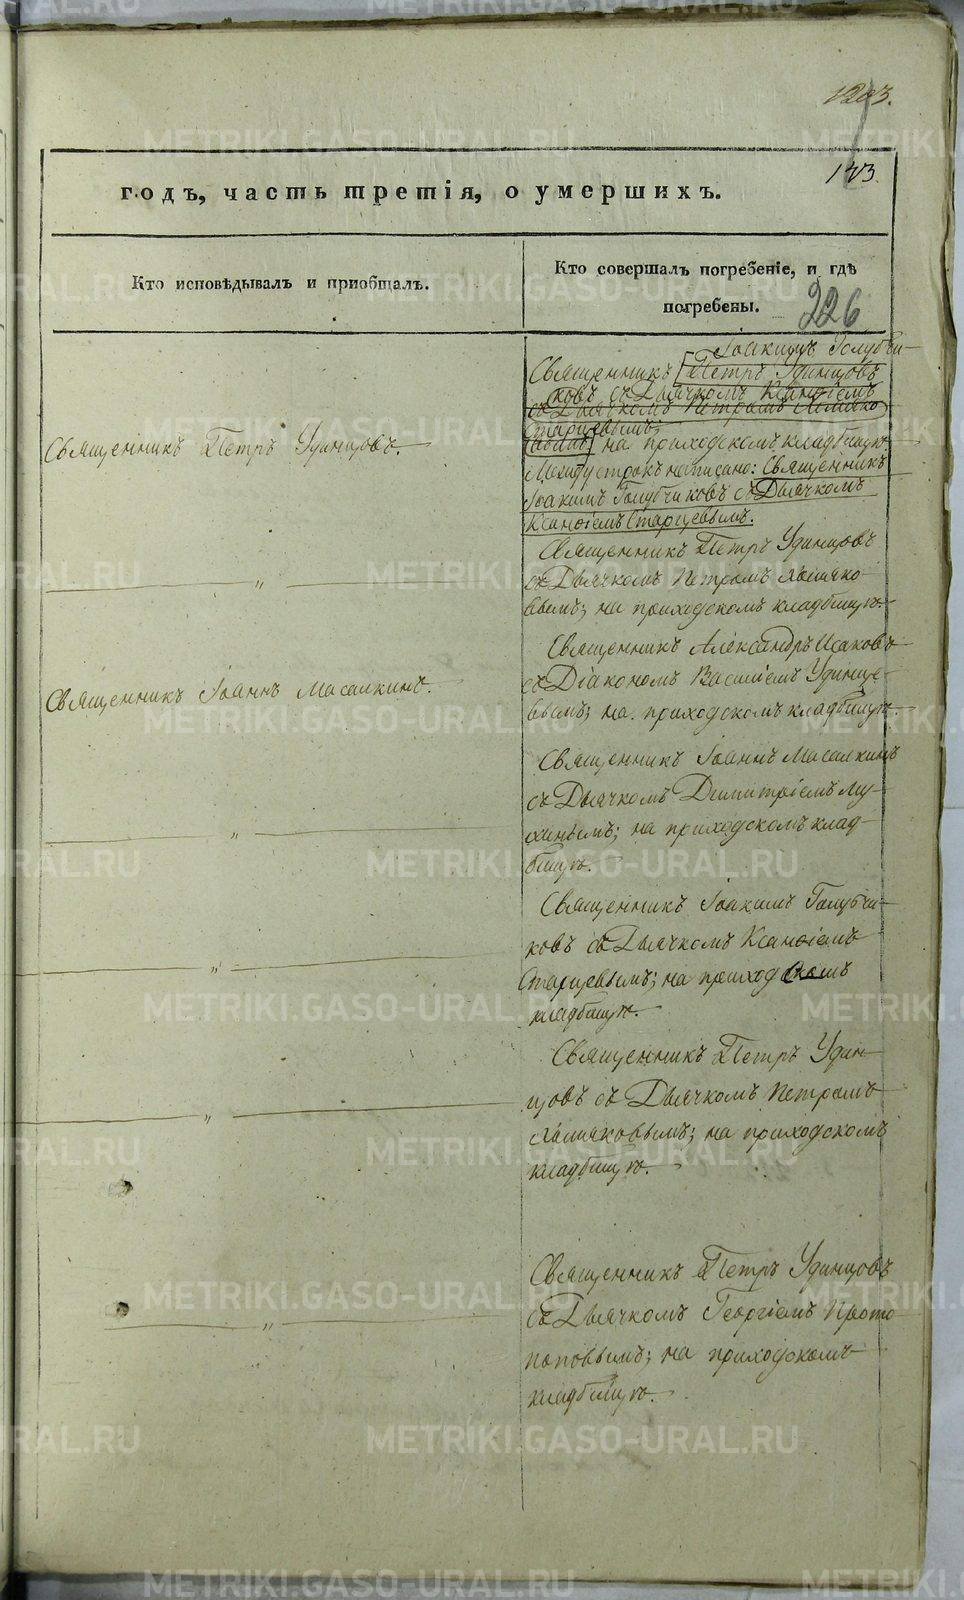 123.
годъ, часть третія, о умершихъ.
Кто исповѣдывалъ и приобщалъ.
Кто совершалъ погребеніе, и гдѣ
погребены.
226
Іоакимъ Голубчи-
Священникъ Петръ Удинцовъ
ковъ съ Дьячкомъ Ксанѳіемъ
съ Дьячкомъ Петромъ
Старцевымъ;
на приходскомъ кладбищѣ.
Между строкъ написано: Священникъ
Іоакимъ Голубчиковъ съ Дьячкомъ
Ксанѳіемъ Старцевымъ.
Священникъ Петръ Удинцовъ.
Священникъ Петръ Удинцовъ
съ Дьячкомъ Петромъ
на приходскомъ кладбищѣ.
"
Священникъ Александръ Исаковъ
съ Діакономъ Василіемъ Удинце-
вымъ; на приходскомъ кладбищѣ.
Священникъ Іоаннъ Масалкинъ.
Священникъ Іоаннъ Масалкинъ
съ Дьячкомъ Димитріемъ Му-
хинымъ; на приходскомъ клад-
бищѣ.
"
Священникъ Іоакимъ Голубчи-
ковъ съ Дьячкомъ Ксанѳіемъ
Старцевымъ; на приходскомъ
кладбищѣ.
"
Священникъ Петръ Удин-
цовъ съ Дьячкомъ Петромъ
на приходскомъ
кладбищѣ.
"
Священникъ Петръ Удинцовъ
съ Дьячкомъ Георгіемъ Прото
поповымъ; на приходскомъ
кладбищѣ.
"
METRIKI.GASO-URAL.RU